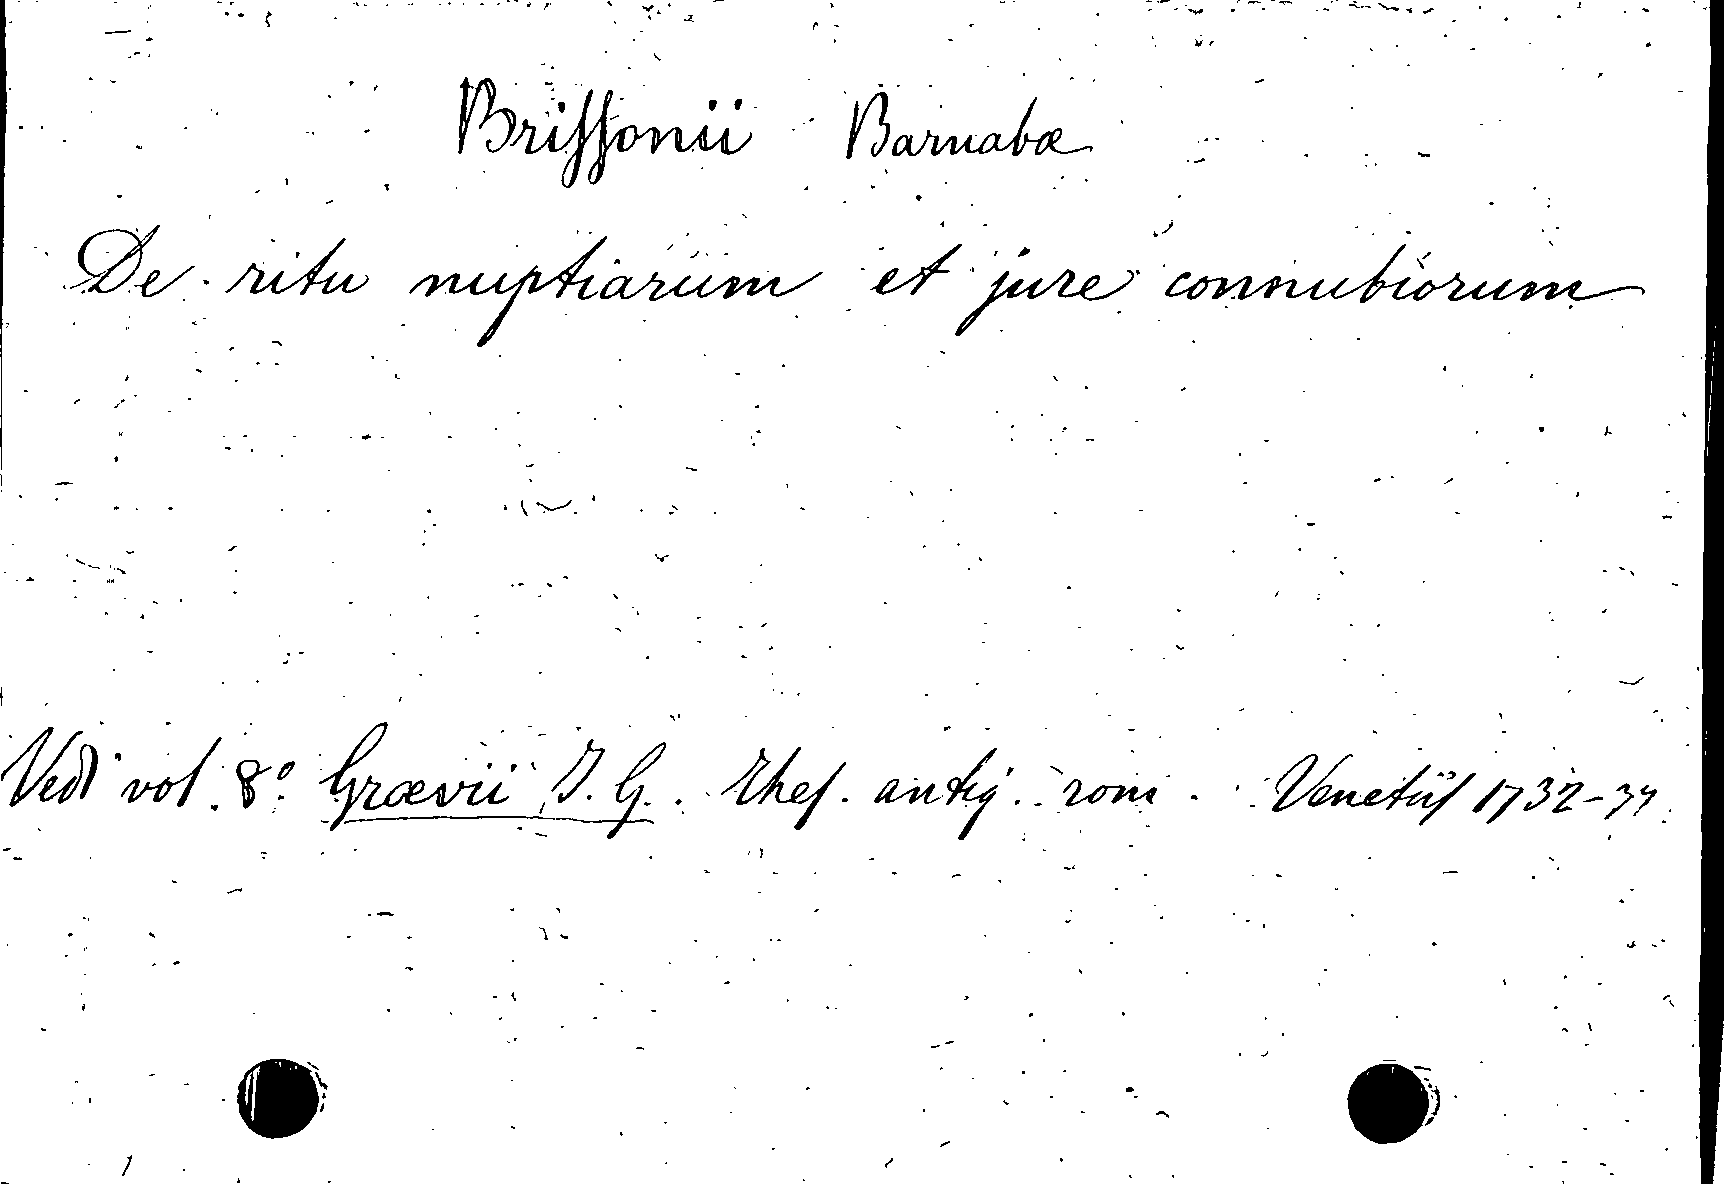 Brissonii Barnabæ
De ritu nuptiarum et jure connubiorum
Vedi vol. 8° Grævii J. G. Thes. antiq. rom. Venetiis 1732-37